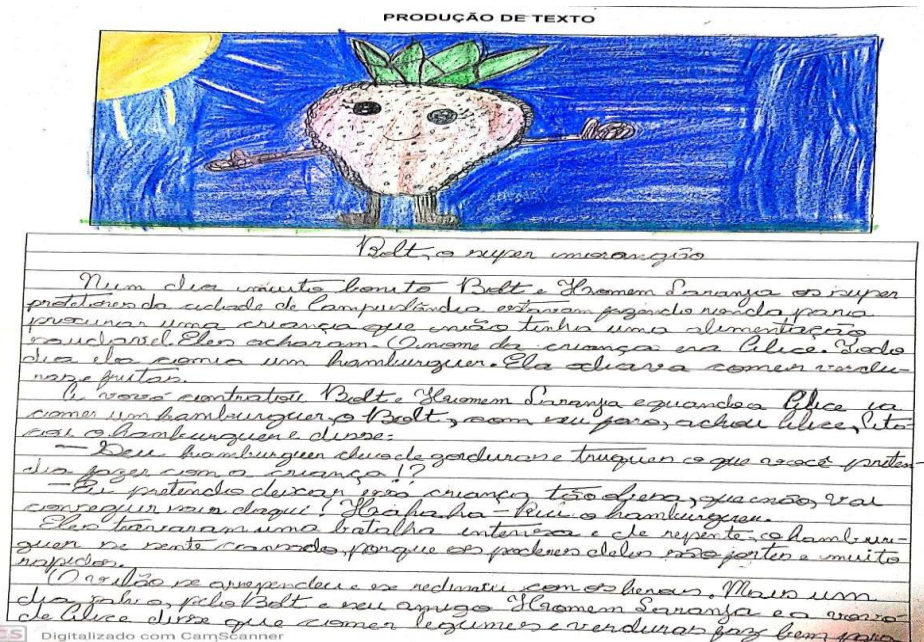 PRODUÇÃO DE TEXTO
Bolt, o super morangão
Num dia muito bonito Bolt e Homem Laranja os super
protetores da cidade de Campuslândia, estavam fazendo ronda, para
procurar uma criança que não tinha uma alimentação
saudavel. Eles acharam. O nome da criança era Alice. Todo
dia ela comia um hamburguer. Ela odiava comer verdu-
ras e frutas.
A vovó contratou Bolt e Homem Laranja e quando a Alice ia
comer um hamburguer, o Bolt, com seu faro, achou Alice,
o hamburguer e disse:
— Seu hamburguer cheio de gorduras e truques o que você preten-
dia fazer com a criança!?
— Eu pretendo deixar essa criança tão que não, vai
conseguir sair daqui! Ha ha ha - o hamburguer.
Eles travaram uma batalha intensa e de repente, o hambur-
guer se sente cansado, porque os poderes deles são fortes e muito
rapidos.
O vilão se arrependeu e se redimiu com os herois. Mais um
dia salvo, pelo Bolt e seu amigo Homem Laranja e a vovó
de Alice disse que comer legumes e verduras faz bem para
CS Digitalizado com CamScanner